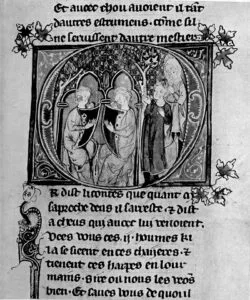 Et avoec chou avoient il tant
dautres estrumens. come sil
ne servissent dautre mestier
R dist li contes que quant
saproche deus il sareste. & dist
a cheus qui avoec lui venoient.
Vees vous ces .ij. houmes ki
la se sieent en ces chaieres. &
tienent ces harpes en lour
mains. Sire oil nous les veõs
bien. Et saves vous de quoi il